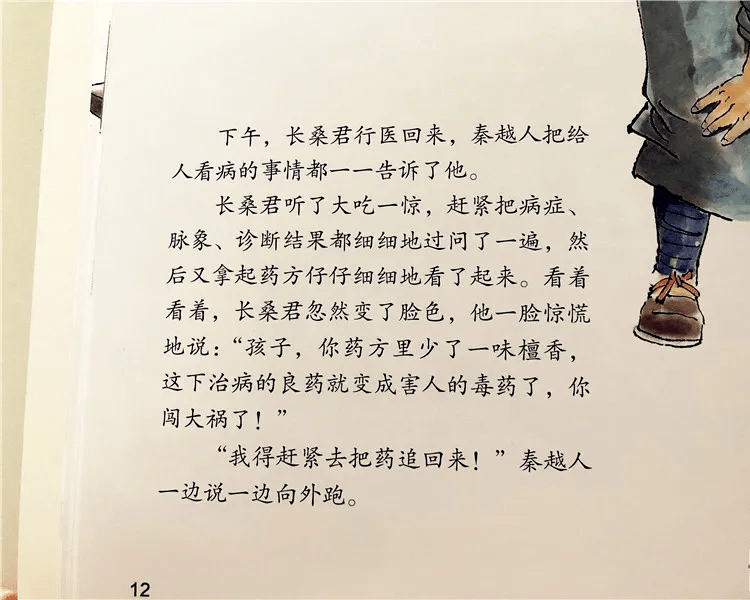 下午，长桑君行医回来，秦越人把给
人看病的事情都一一告诉了他。
长桑君听了大吃一惊，赶紧把病症、
脉象、诊断结果都细细地过问了一遍，然
后又拿起药方仔仔细细地看了起来。看着
看着，长桑君忽然变了脸色，他一脸惊慌
地说：“孩子，你药方里少了一味檀香，
这下治病的良药就变成害人的毒药了，你
闯大祸了！”
“我得赶紧去把药追回来！”秦越人
一边说一边向外跑。
12